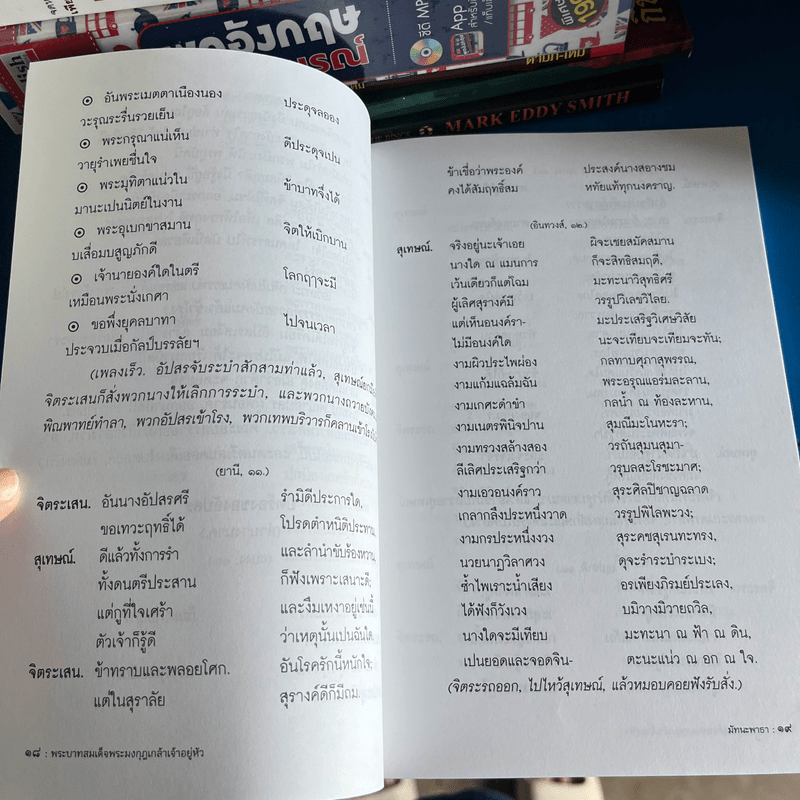 พูดอังกฤษ
ซีดี MP
App
MARK EDDY SMITH
๏ อันพระเมตตาเนืองนอง ประดุจลออง
วะรุณระรื่นรวยเย็น
๏ พระกรุณาแน่เห็น ดีประดุจเปน
วายุรำเพยชื่นใจ
๏ พระมุทิตาแน่วใน ข้าบาทจึ่งได้
มานะเปนนิตย์ในงาน
๏ พระอุเบกขาสมาน จิตให้เบิกบาน
บเสื่อมบสูญภักดี
๏ เจ้านายองค์ใดในตรี โลกฤๅจะมี
เหมือนพระนั่งเกศา
๏ ขอพึ่งยุคลบาทา ไปจนเวลา
ประจวบเมื่อกัลป์บรรลัยฯ
(เพลงเร็ว. อัปสรจับระบำสักสามท่าแล้ว, สุเทษณ์
จิตระเสนก็สั่งพวกนางให้เลิกการระบำ, และพวกนางถวาย
พิณพาทย์ทำลา, พวกอัปสรเข้าโรง, พวกเทพบริวารก็คลานเข้า
(ยานี, ๑๑.)
จิตระเสน. อันนางอัปสรศรี รำมิดีประการใด,
ขอเทวะฤทธิ์ได้ โปรดตำหนิติประทาน.
สุเทษณ์. ดีแล้วทั้งการรำ และลำนำขับร้องหวาน,
ทั้งดนตรีประสาน ก็ฟังเพราะเสนาะดี;
แต่กูที่ใจเศร้า และงึมเหงาอยู่เช่นนี้
ตัวเจ้าก็รู้ดี ว่าเหตุนั้นเปนฉันใด.
จิตระเสน. ข้าทราบและพลอยโศก. อันโรครักนี้หนักใจ;
แต่ในสุราลัย สุรางค์ดีก็มีถม.
๑๘ : พระบาทสมเด็จพระมงกุฎเกล้าเจ้าอยู่หัว
ข้าเชื่อว่าพระองค์ ประสงค์นางสอางชม
คงได้สัมฤทธิ์สม หทัยแท้ทุกนงคราญ.
(อินทวงส์, ๑๒.)
สุเทษณ์. จริงอยู่นะเจ้าเอย ผิจะเชยสมัคสมาน
นางใด ณ แมนการ ก็จะสิทธิสมฤดี,
เว้นเดียวก็แต่โฉม มะทะนาวิสุทธิศรี
ผู้เลิศสุรางค์มี วรรูปวิเลขวิไลย.
แต่เห็นอนงค์รา- มะประเสริฐวิเศษวิสัย
ไม่มีอนงค์ใด นะจะเทียบจะเทียมจะทัน;
งามผิวประไพผ่อง กลทาบศุภาสุพรรณ,
งามแก้มแฉล้มฉัน พระอรุณแอร่มละลาน,
งามเกศะดำขำ กลน้ำ ณ ท้องละหาน,
งามเนตรพินิจปาน สุมณีมะโนหะรา;
งามทรวงสล้างสอง วรถันสุมนสุมา-
ลีเลิศประเสริฐกว่า วรุบลสะโรชะมาศ;
งามเอวอนงค์ราว สุระศิลปิชาญฉลาด
เกลากลึงประหนึ่งวาด วรรูปพิไลพะวง;
งามกรประหนึ่งงวง สุระคชสุเรนทะทรง,
นวยนาฏวิลาศวง ดุจะรำระบำระเบง;
ซ้ำไพเราะน้ำเสียง อรเพียงภิรมย์ประเลง,
ได้ฟังก็วังเวง บมิวางมิวายถวิล,
นางใดจะมีเทียบ มะทะนา ณ ฟ้า ณ ดิน,
เปนยอดและจอดจิน- ตะนะแน่ว ณ อก ณ ใจ.
(จิตระรถออก, ไปไหว้สุเทษณ์, แล้วหมอบคอยฟังรับสั่ง.)
มัทนะพาธา : ๑๙